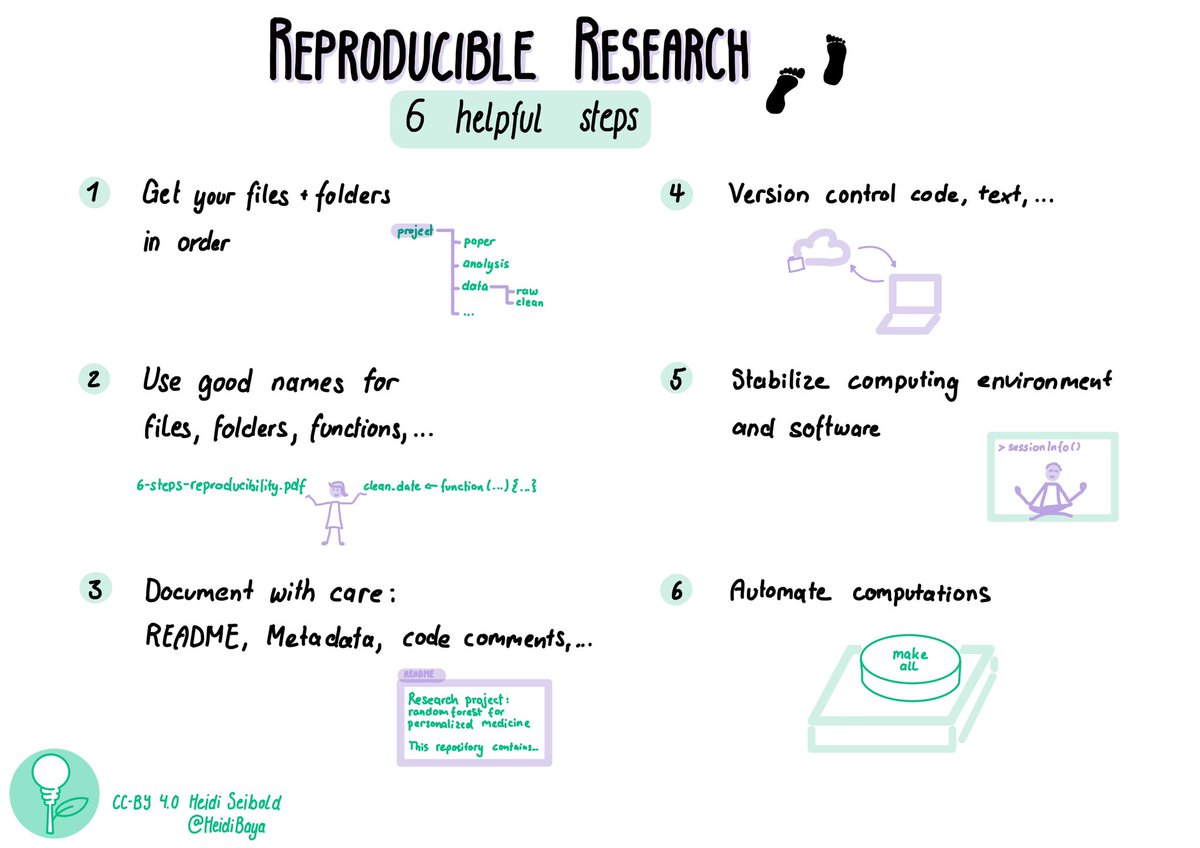 REPRODUCIBLE RESEARCH
6 helpful steps
1 Get your files + folders
in order
project
paper
analysis
data
raw
clean
...
2 Use good names for
files, folders, functions,...
6-steps-reproducibility.pdf
clean_date ← function (...) {...}
3 Document with care:
README, Metadata, code comments,...
README
Research project:
random forest for
personalized medicine
This repository contains...
4 Version control code, text,...
5 Stabilize computing environment
and software
> sessionInfo()
6 Automate computations
make
all
CC-BY 4.0 Heidi Seibold
@HeidiBaya